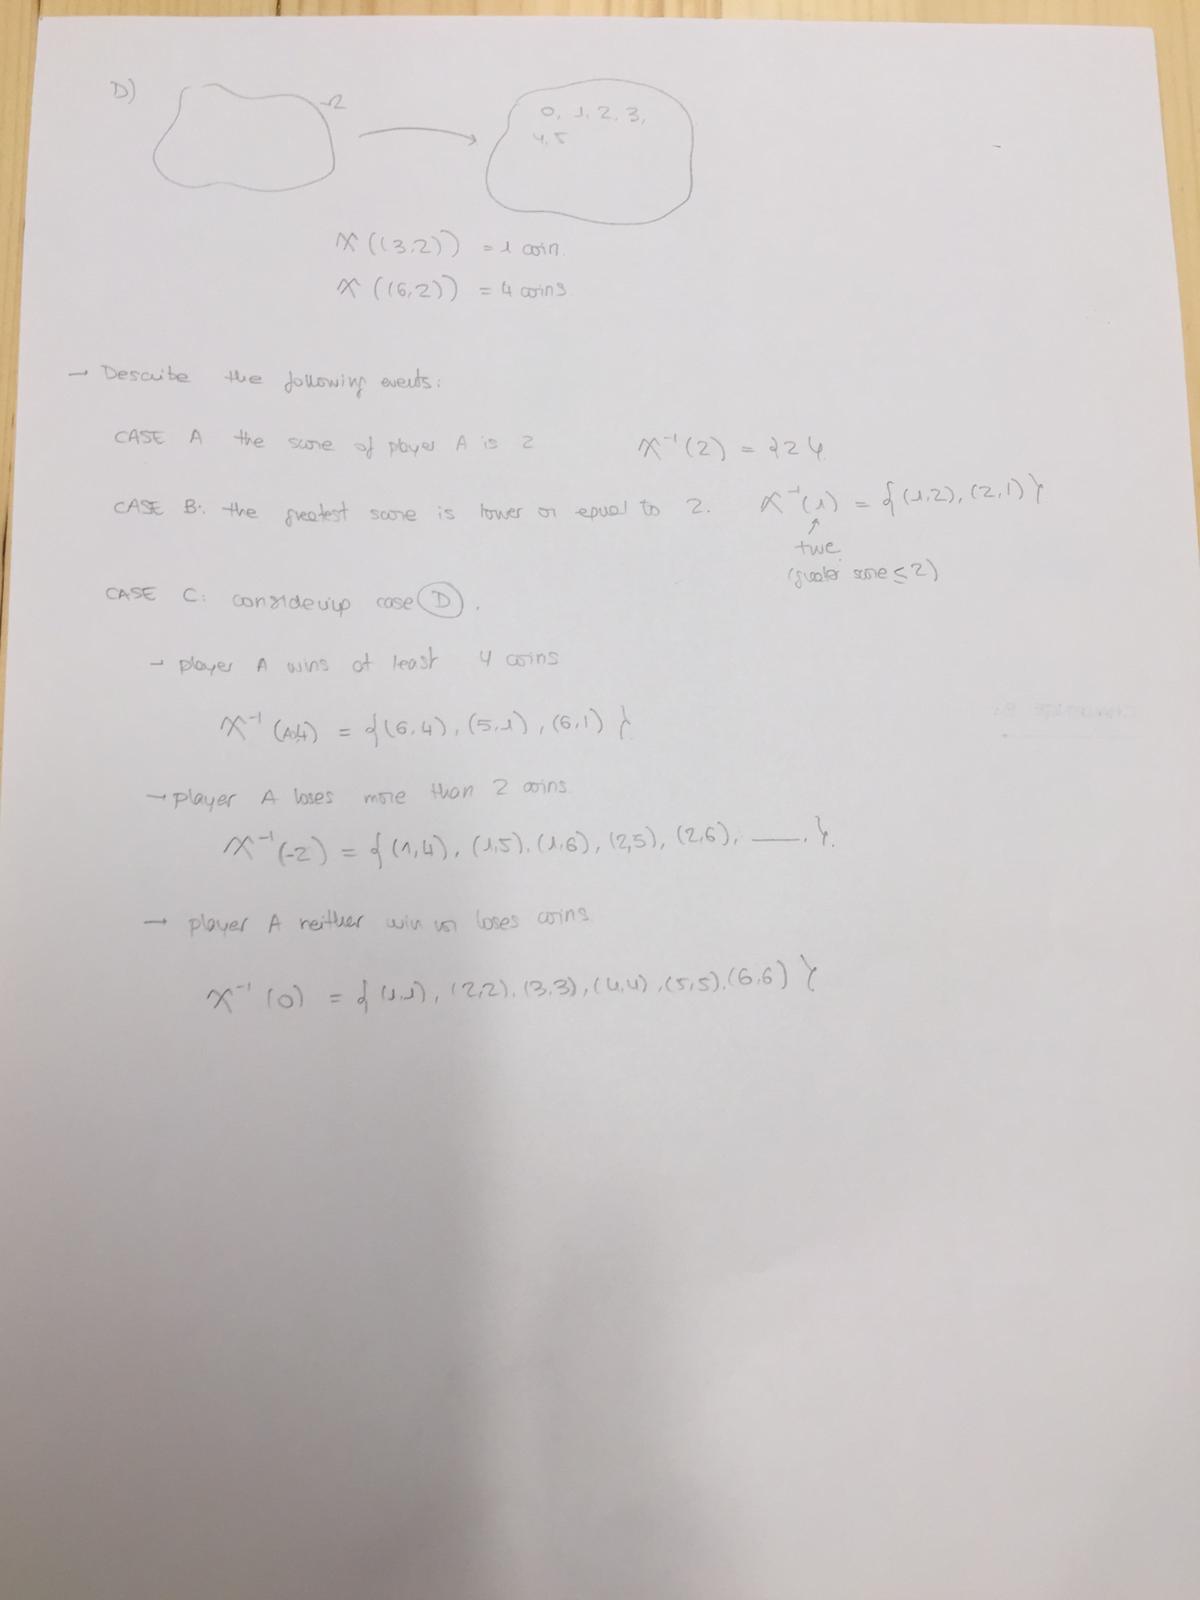 D)
Ω
0, 1, 2, 3,
4,5
X((3,2)) = 1 coin.
X((6,2)) = 4 coins.
→ Describe the following events:
CASE A the score of player A is 2
X⁻¹(2) = {2}.
CASE B: the greatest score is lower or equal to 2.
X⁻¹(1) = {(1,2), (2,1)}
↑
true
(greater score ≤ 2)
CASE C: considering case D.
→ player A wins at least 4 coins
X⁻¹(A≥4) = {(6,4), (5,1), (6,1)}
→ player A loses more than 2 coins.
X⁻¹(-2) = {(1,4), (1,5), (1,6), (2,5), (2,6), —.}.
→ player A neither win or loses coins
X⁻¹(0) = {(1,1), (2,2), (3,3), (4,4), (5,5), (6,6)}